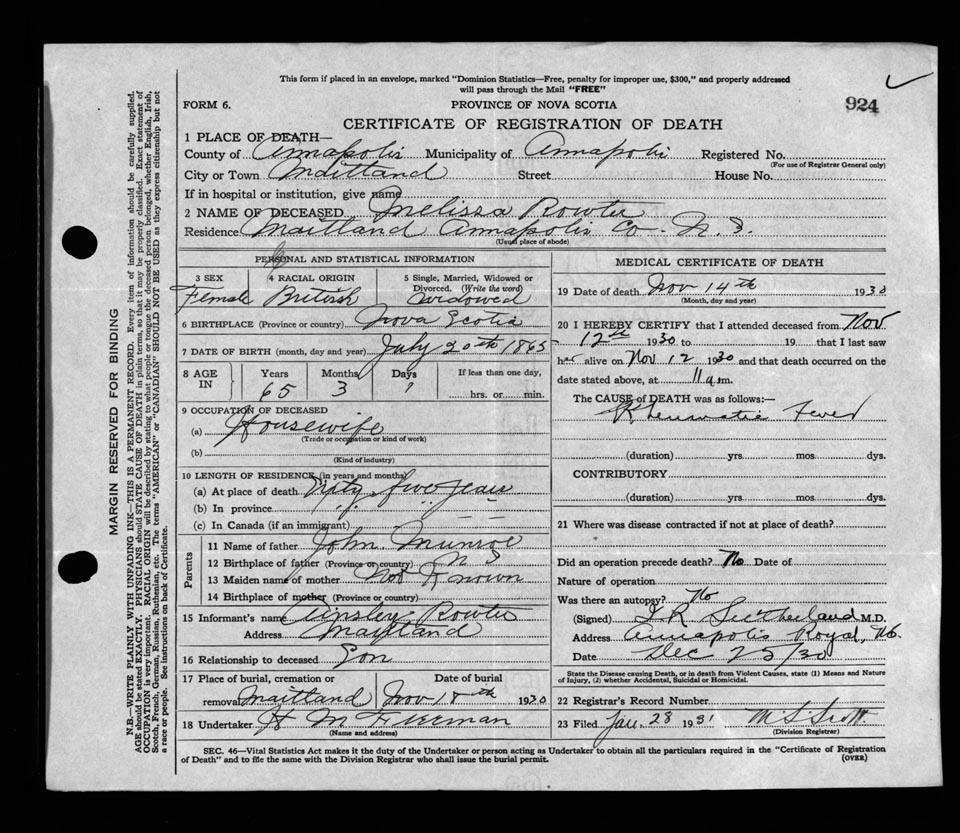 This form if placed in an envelope, marked "Dominion Statistics—Free, penalty for improper use, $300," and properly addressed
will pass through the Mail "FREE"
FORM 6.
PROVINCE OF NOVA SCOTIA
924
CERTIFICATE OF REGISTRATION OF DEATH
1 PLACE OF DEATH—
County of Annapolis Municipality of Annapolis Registered No.
(For use of Registrar General only)
City or Town Maitland Street House No.
If in hospital or institution, give name
2 NAME OF DECEASED Melissa Rowter
Residence Maitland Annapolis Co. N. S.
(Usual place of abode)
PERSONAL AND STATISTICAL INFORMATION
3 SEX 4 RACIAL ORIGIN 5 Single, Married, Widowed or
Divorced. (Write the word)
Female British Widowed
6 BIRTHPLACE (Province or country) Nova Scotia
7 DATE OF BIRTH (month, day and year) July 20th 1865
8 AGE IN Years Months Days If less than one day,
65 3 ? hrs. or min.
9 OCCUPATION OF DECEASED
(a) Housewife
(Trade or occupation or kind of work)
(b)
(Kind of industry)
10 LENGTH OF RESIDENCE (in years and months)
(a) At place of death five years
(b) In province " " "
(c) In Canada (if an immigrant) — —
Parents
11 Name of father John Munroe
12 Birthplace of father (Province or country) N S
13 Maiden name of mother Not Known
14 Birthplace of mother (Province or country)
15 Informant's name Ainsley Rowter
Address Maitland
16 Relationship to deceased Son
17 Place of burial, cremation or Date of burial
removal Maitland Nov 18th 1930
18 Undertaker H M
(Name and address)
MEDICAL CERTIFICATE OF DEATH
19 Date of death Nov 14th 1930
(Month, day and year)
20 I HEREBY CERTIFY that I attended deceased from Nov
12th 1930 to 19 that I last saw
her alive on Nov 12 1930 and that death occurred on the
date stated above, at 11 a m.
The CAUSE of DEATH was as follows:—
Rheumatic Fever
(duration) yrs. mos. dys.
CONTRIBUTORY
(duration) yrs. mos. dys.
21 Where was disease contracted if not at place of death?
Did an operation precede death? No Date of
Nature of operation
Was there an autopsy? No
(Signed) Sutherland M.D.
Address Annapolis Royal, N.S.
Date Dec 25/30
State the Disease causing Death, or in death from Violent Causes, state (1) Means and Nature
of Injury, (2) whether Accidental, Suicidal or Homicidal.
22 Registrar's Record Number
23 Filed Jan. 28 1931 M. S. Scott
(Division Registrar)
SEC. 46—Vital Statistics Act makes it the duty of the Undertaker or person acting as Undertaker to obtain all the particulars required in the "Certificate of Registration
of Death" and to file the same with the Division Registrar who shall issue the burial permit.
(OVER)
MARGIN RESERVED FOR BINDING
N.B.—WRITE PLAINLY WITH UNFADING INK—THIS IS A PERMANENT RECORD. Every item of information should be carefully supplied.
AGE should be stated EXACTLY. PHYSICIANS should STATE CAUSE OF DEATH in plain terms, so that it may be properly classified. Exact statement of
OCCUPATION is very important. RACIAL ORIGIN will be described by stating to what people or tongue the deceased person belonged, whether English, Irish,
Scotch, French, German, Russian, Ruthenian, etc. The terms "AMERICAN" or "CANADIAN" SHOULD NOT BE USED as they express citizenship but not
a race or people. See instructions on back of Certificate.